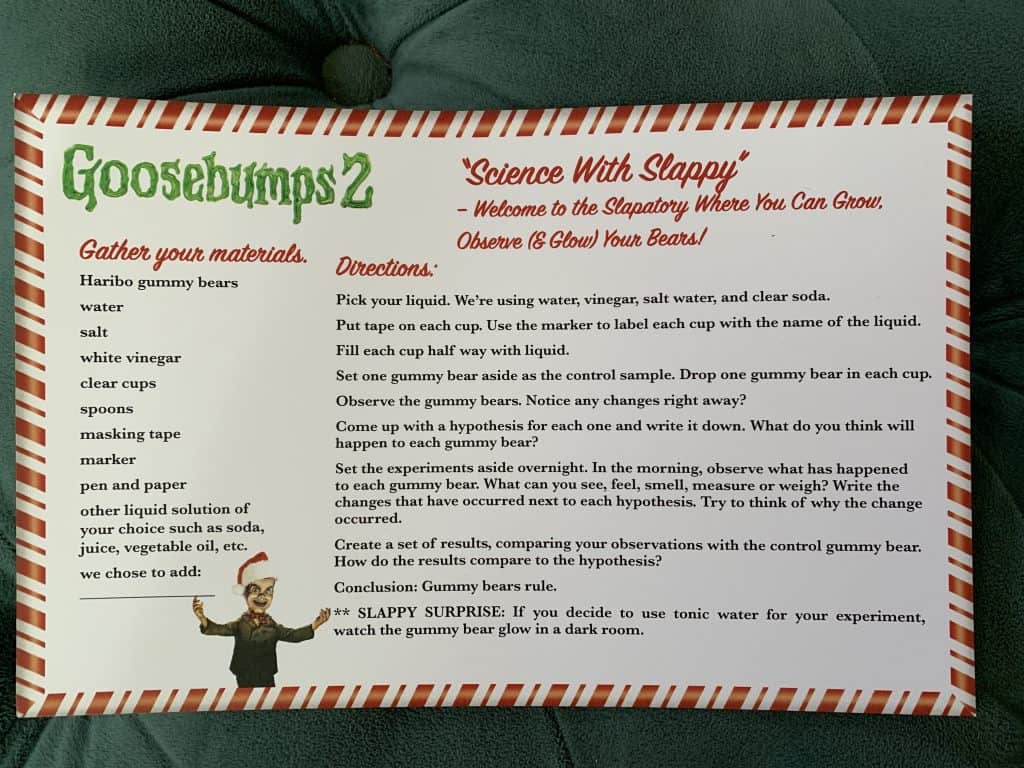 Goosebumps 2
"Science With Slappy"
– Welcome to the Slapatory Where You Can Grow,
Observe (& Glow) Your Bears!
Gather your materials.
Haribo gummy bears
water
salt
white vinegar
clear cups
spoons
masking tape
marker
pen and paper
other liquid solution of
your choice such as soda,
juice, vegetable oil, etc.
we chose to add:
Directions:
Pick your liquid. We're using water, vinegar, salt water, and clear soda.
Put tape on each cup. Use the marker to label each cup with the name of the liquid.
Fill each cup half way with liquid.
Set one gummy bear aside as the control sample. Drop one gummy bear in each cup.
Observe the gummy bears. Notice any changes right away?
Come up with a hypothesis for each one and write it down. What do you think will
happen to each gummy bear?
Set the experiments aside overnight. In the morning, observe what has happened
to each gummy bear. What can you see, feel, smell, measure or weigh? Write the
changes that have occurred next to each hypothesis. Try to think of why the change
occurred.
Create a set of results, comparing your observations with the control gummy bear.
How do the results compare to the hypothesis?
Conclusion: Gummy bears rule.
** SLAPPY SURPRISE: If you decide to use tonic water for your experiment,
watch the gummy bear glow in a dark room.